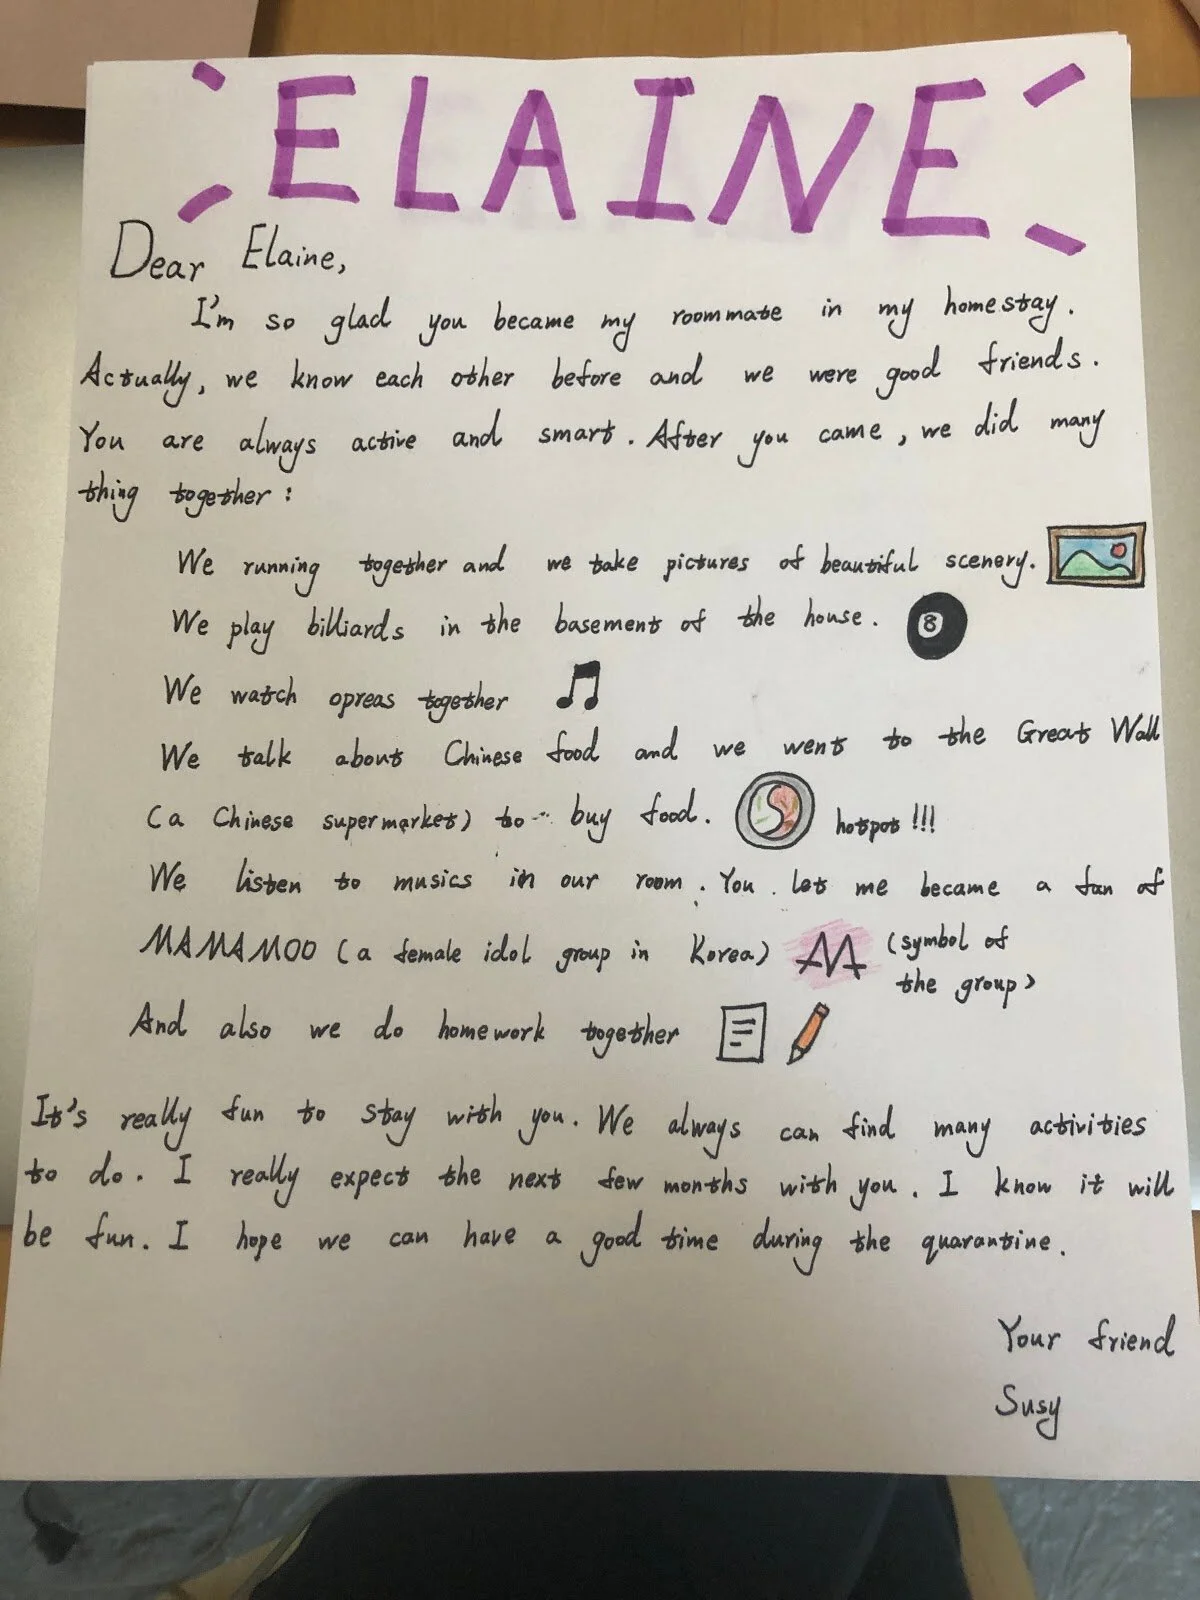 ELAINE
Dear Elaine,
I'm so glad you became my roommate in my homestay.
Actually, we know each other before and we were good friends.
You are always active and smart. After you came, we did many
thing together:
We running together and we take pictures of beautiful scenery.
We play billiards in the basement of the house. 8
We watch opreas together
We talk about Chinese food and we went to the Great Wall
(a Chinese supermarket) to buy food. hotpot!!!
We listen to musics in our room. You let me became a fan of
MAMAMOO (a female idol group in Korea) (symbol of
the group)
And also we do homework together
It's really fun to stay with you. We always can find many activities
to do. I really expect the next few months with you. I know it will
be fun. I hope we can have a good time during the quarantine.
Your friend
Susy